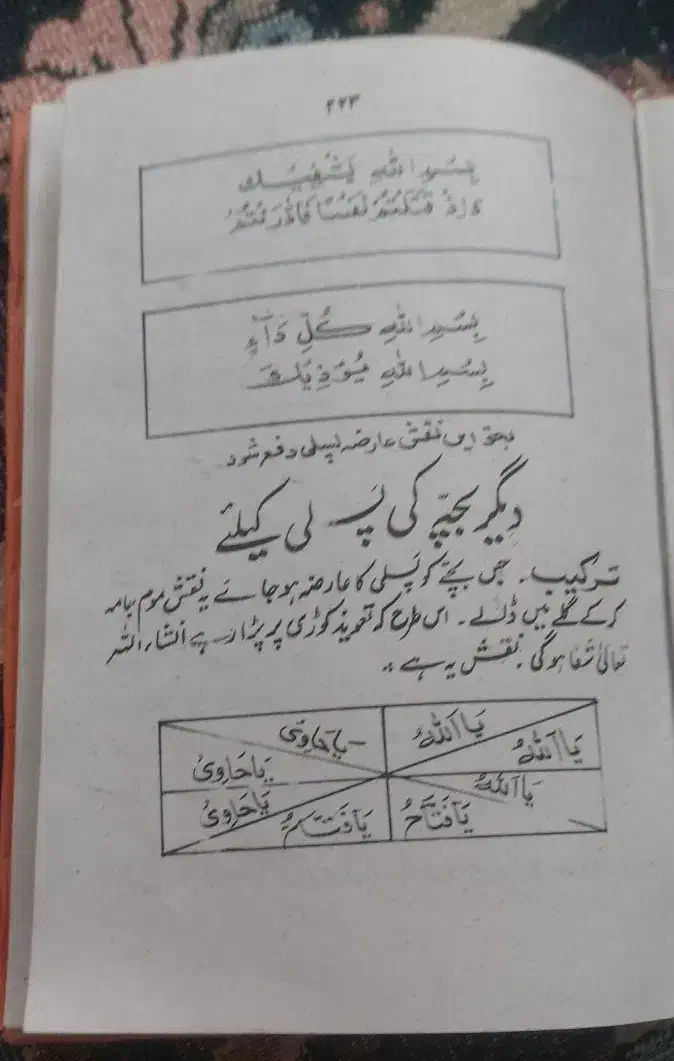 ۲۲۳
بِسْمِ اللهِ يَشْفِيْكَ
وَاِذْ قَتَلْتُمْ نَفْسًا فَادّٰرَءْتُمْ
بِسْمِ اللهِ كُلِّ دَآءٍ
بِسْمِ اللهِ يُؤْذِيْكَ
بحق این نقش عارضہ پسلی دفع شود
دیگر بچّے کی پَسلی کیلئے
ترکیب۔ جس بچّے کو پَسلی کا عارضہ ہو جائے یہ نقش موم جامہ
کرکے گلے میں ڈالے۔ اس طرح کہ تعویذ کوڑی پر پڑا رہے انشاء اللہ
تعالیٰ شفا ہوگی۔ نقش یہ ہے ۔۔
يَا اَللّٰهُ
يَا حَاوِىُ
يَا اَللّٰهُ
يَا حَاوِىُ
يَا اَللّٰهُ
يَا حَاوِىُ
يَا فَتَّاحُ
يَا فَتَّاحُ